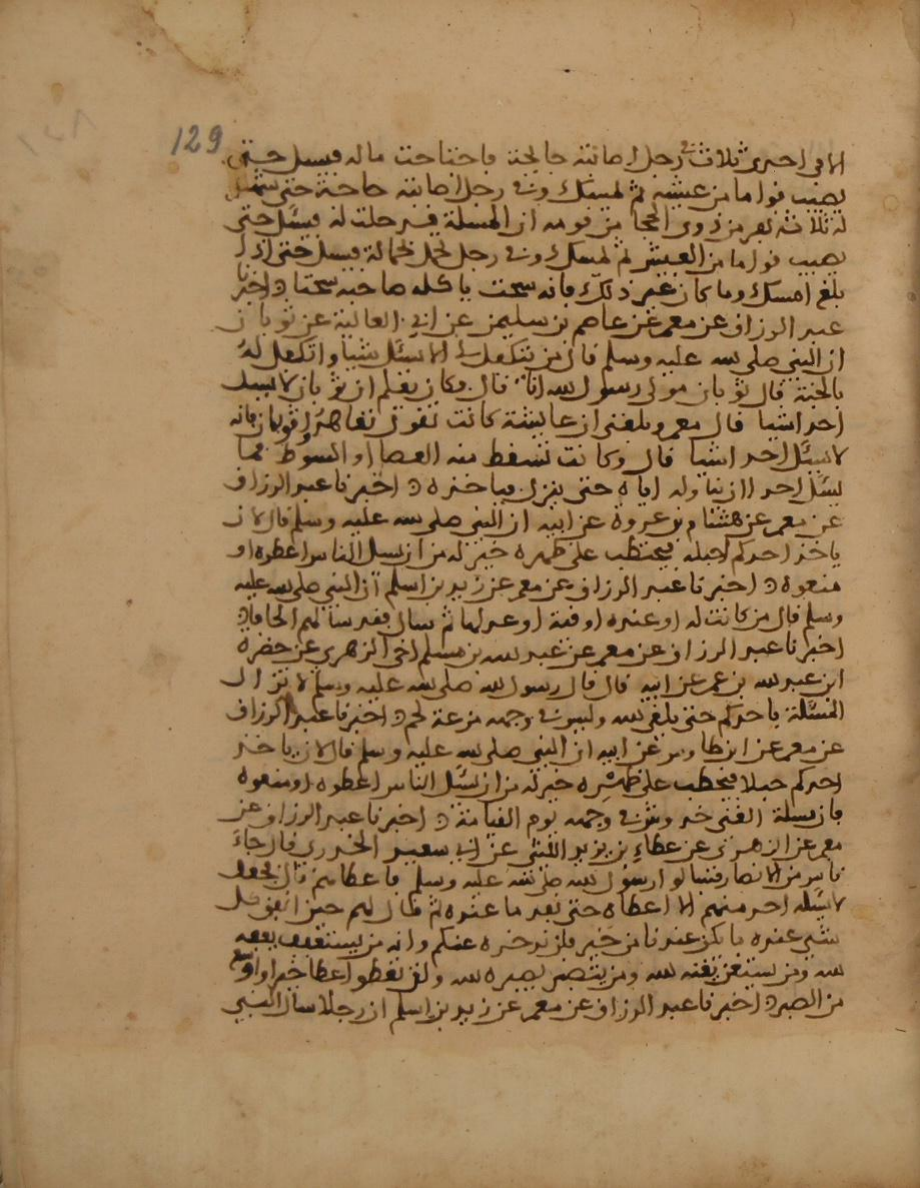 129
الا في احدى ثلاث في رجل اصابته جايحة فاجتاحت ماله فيسل حتى
يصيب قواما من عيشه ثم لمسك وفي رجل اصابته حاجة حتى
له ثلاثة نفر من ذوى الحجا من قومه ان المسلة قد حلت له فيسئل حتى
يصيب قواما من العيش ثم لمسك وفي رجل تحمل بحمالة فيسل حتى اذا
بلغ امسك وما كان غير ذلك فانه سحت ياكله صاحبه سحتا اخبرنا
عبد الرزاق عن معمر عن عاصم بن سليمن عن ابي العالية عن ثوبان
ان النبي صلى الله عليه وسلم قال من يتكفل لي الا يسئل شيا واتكفل له
بالجنة قال ثوبان مولى رسول الله انا قال وكان يعلم ان ثوبان لا يسل
احدا شيا قال معمر وبلغني ان عايشة كانت تقول تعاهدوا ثوبان فانه
لا يسئل احدا شيا قال وكانت تسقط منه العصا او السوط فما
يسئل احدا ان يناوله اياه حتى ينزل فياخذه اخبرنا عبد الرزاق
عن معمر عن هشام بن عروة عن ابيه ان النبي صلى الله عليه وسلم قال لان
ياخذ احدكم احبله فيحتطب على ظهره خير له من ان يسل الناس اعطوه او
منعوه اخبرنا عبد الرزاق عن معمر عن زيد بن اسلم ان النبي صلى الله عليه
وسلم قال من كانت له او عنده اوقية او عدلها ثم سال فقد سالهم الحافا
اخبرنا عبد الرزاق عن معمر عن عبد الله بن مسلم اخي الزهري عن حمزة
ابن عبد الله بن عمر عن ابيه قال قال رسول الله صلى الله عليه وسلم لا تزال
المسئلة باحدكم حتى يلقى الله وليس في وجهه مزعة لحم اخبرنا عبد الرزاق
عن معمر عن ابن طاوس عن ابيه ان النبي صلى الله عليه وسلم قال لان ياخذ
احدكم حبلا فيحطب على ظهره خير له من ان يسئل الناس اعطوه او منعوه
فان مسلة الغني خدوش في وجهه يوم القيامة اخبرنا عبد الرزاق عن
معمر عن الزهري عن عطاء بن يزيد الليثي عن ابي سعيد الخدري قال جاء
ناس من الانصار فسالوا رسول الله صلى الله عليه وسلم فاعطاهم قال فجعل
لا يسئله احد منهم الا اعطاه حتى نفد ما عنده ثم قال لهم حين انفق كل
شي عنده ما يكن عندنا من خير فلن ندخره عنكم وانه من يستعفف يعفه
الله ومن يستغن يغنه الله ومن يتصبر يصبره الله ولن تعطوا عطا خيرا واوسع
من الصبر اخبرنا عبد الرزاق عن معمر عن زيد بن اسلم ان رجلا سال النبي